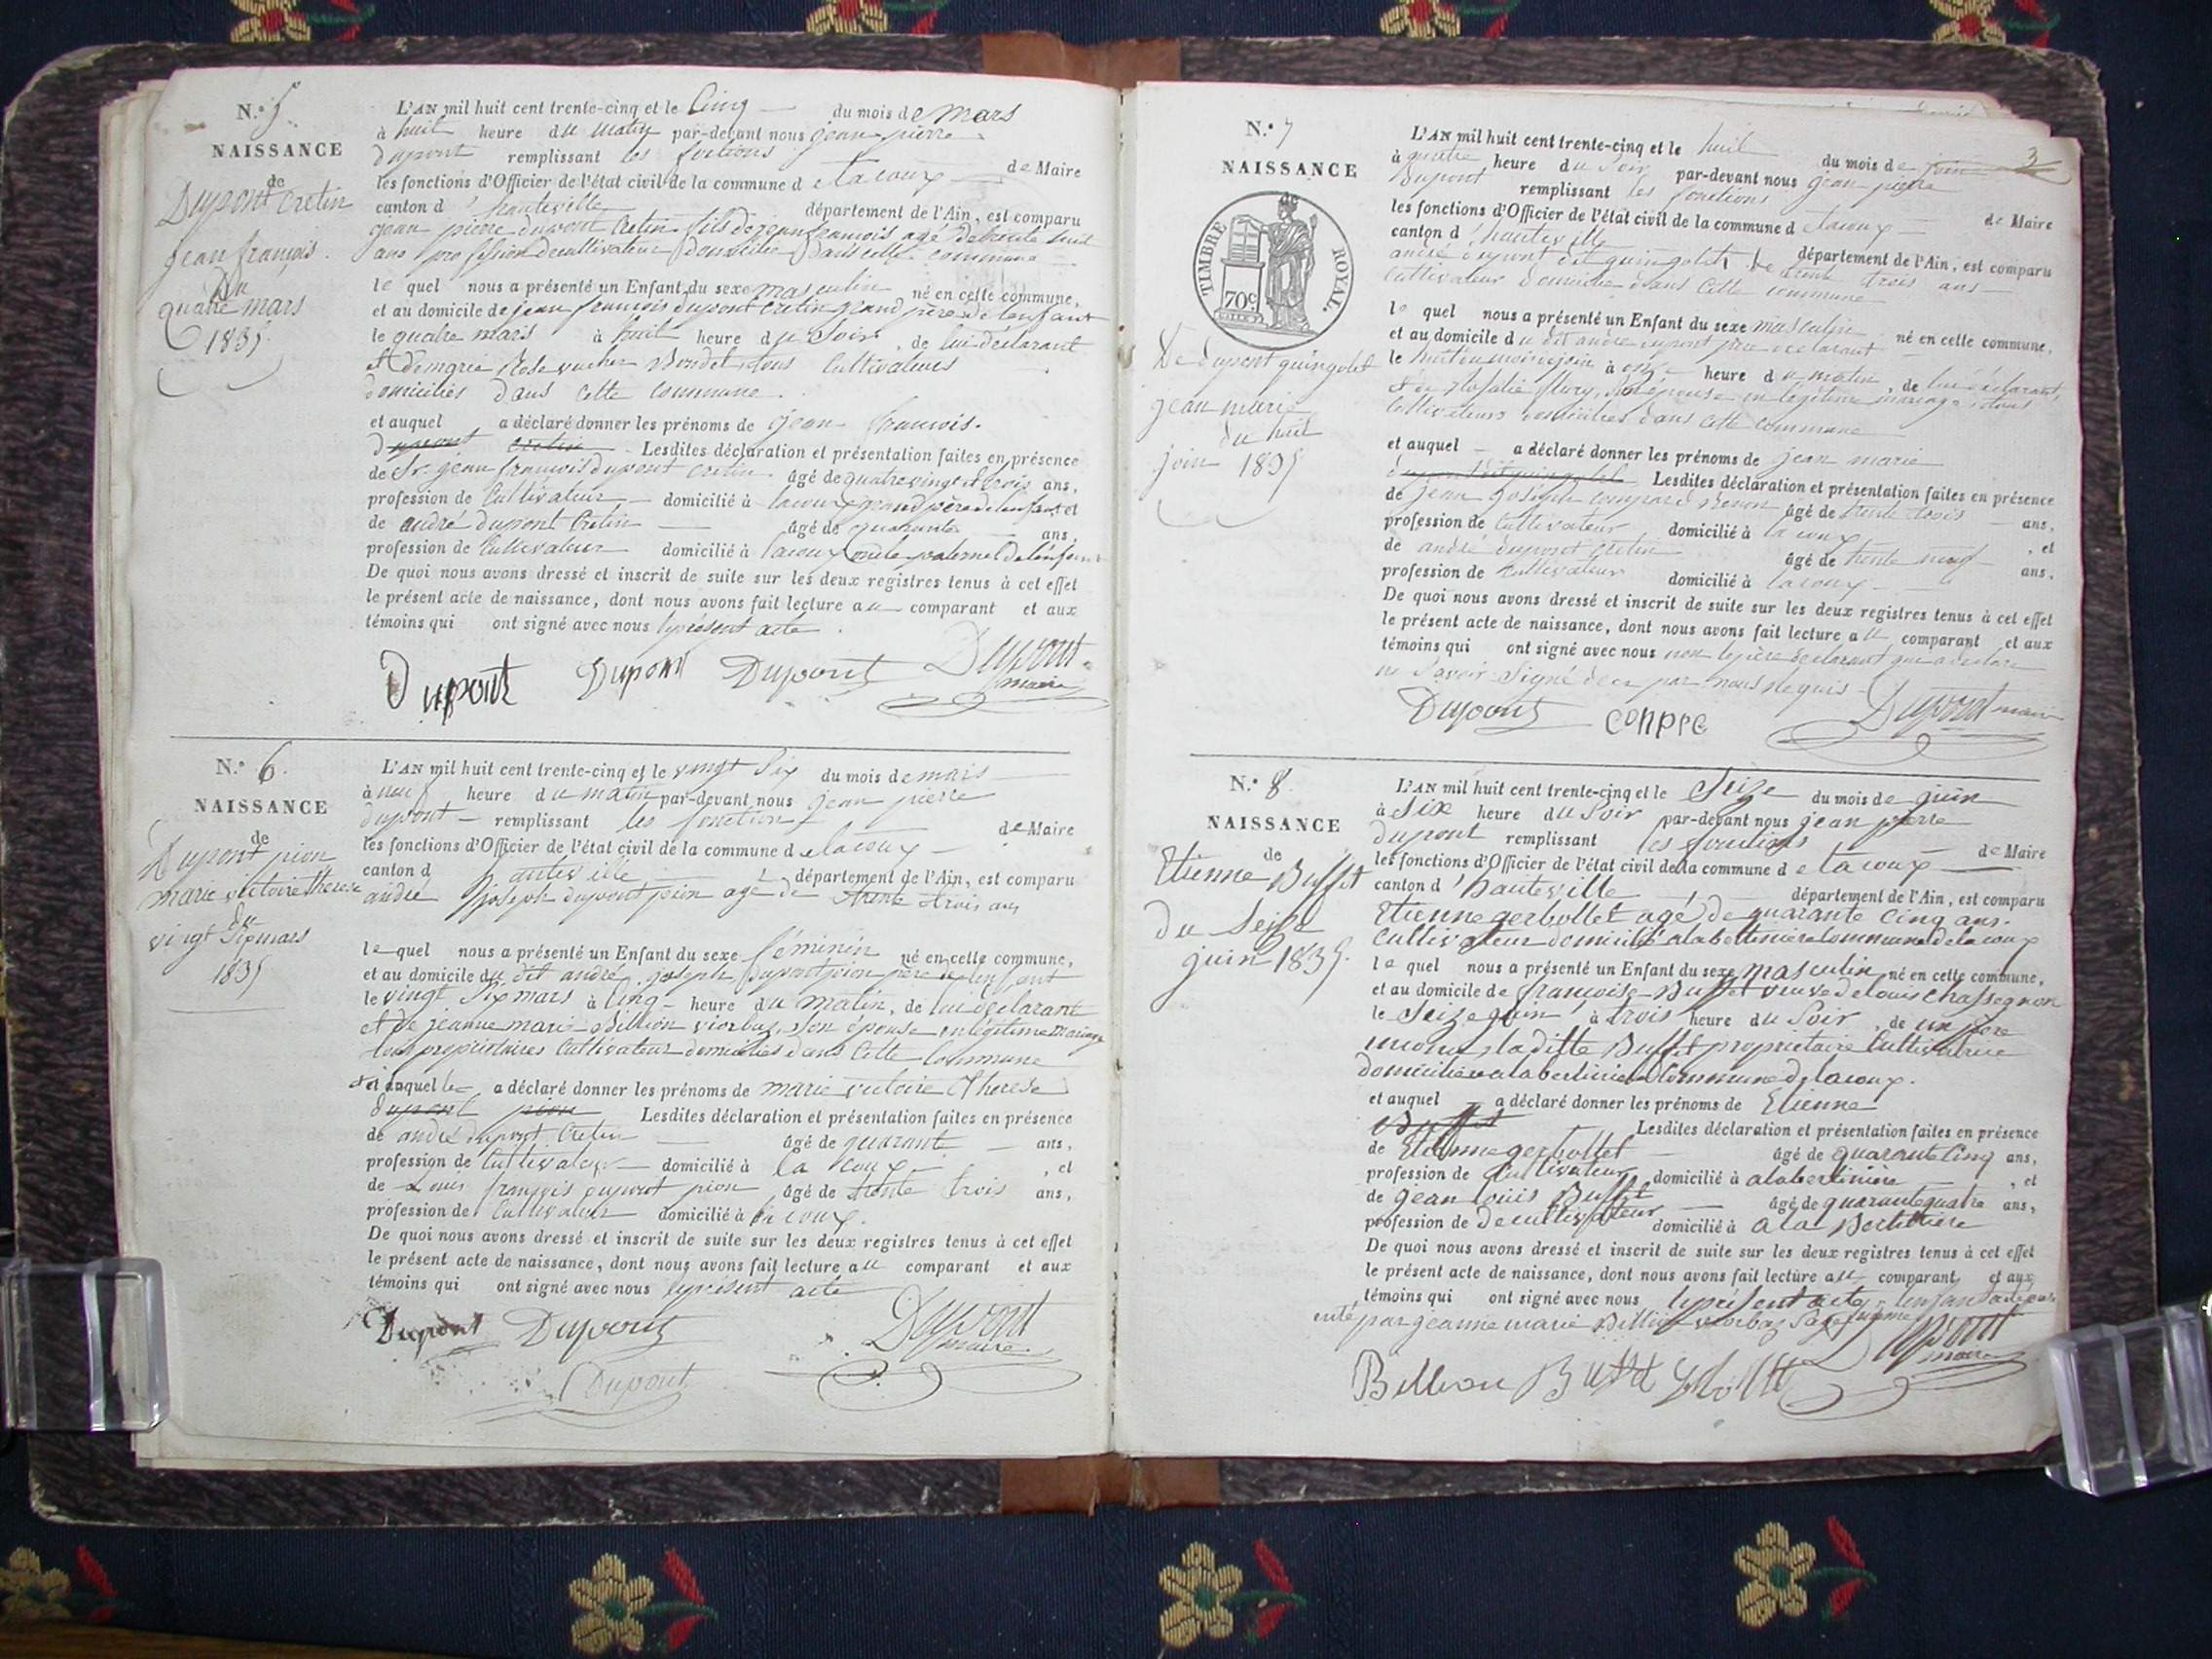 N.° 5
NAISSANCE
de
Dupont Cretin
jean françois
du
quatre mars
1835
L'AN mil huit cent trente-cinq et le Cinq du mois de mars
à huit heure du matin par-devant nous jean pierre
dupont remplissant les de Maire
les fonctions d'Officier de l'état civil de la commune de lacoux
canton d'hauteville département de l'Ain, est comparu
jean pierre dupont Cretin fils de jean francois agé de trente huit
ans profession de cultivateur domicilie dans cette commune
le quel nous a présenté un Enfant du sexe masculin né en cette commune,
et au domicile de jean francois dupont Cretin grand père de lenfant
le quatre mars à huit heure du Soir, de lui déclarant
et de marie Rose tous Cultivateurs
domiciliés dans cette commune
et auquel a déclaré donner les prénoms de jean francois.
dupont cretin Lesdites déclaration et présentation faites en présence
de Sr. jean francois dupont cretin âgé de quatre vingt trois ans,
profession de Cultivateur domicilié à lacoux grand père de lenfant et
de andré dupont Cretin âgé de quarante ans,
profession de Cultivateur domicilié à lacoux oncle paternel de lenfant
De quoi nous avons dressé et inscrit de suite sur les deux registres tenus à cet effet
le présent acte de naissance, dont nous avons fait lecture au comparant et aux
témoins qui ont signé avec nous le présent acte.
Dupont Dupont Dupont Dupont
maire
N.° 6.
NAISSANCE
de
Dupont pion
marie victoire therese
du
vingt Six mars
1835
L'AN mil huit cent trente-cinq et le vingt Six du mois de mars
à neuf heure du matin par-devant nous jean pierre
dupont remplissant les fonctions de Maire
les fonctions d'Officier de l'état civil de la commune de lacoux
canton d hauteville département de l'Ain, est comparu
andré joseph dupont pion agé de trente trois ans
le quel nous a présenté un Enfant du sexe féminin né en cette commune,
et au domicile du dit andré joseph dupont pion père de lenfant
le vingt Six mars à Cinq heure du matin, de lui déclarant
et de jeanne marie Billion viorbaz son épouse en légitime mariage
tous propriétaires Cultivateur domiciliés dans Cette Commune
et auquel le a déclaré donner les prénoms de marie victoire Therese
dupont pion Lesdites déclaration et présentation faites en présence
de andré dupont Cretin âgé de quarante ans,
profession de Cultivateur domicilié à la coux, et
de Louis françois dupont pion âgé de trente trois ans,
profession de Cultivateur domicilié à la coux.
De quoi nous avons dressé et inscrit de suite sur les deux registres tenus à cet effet
le présent acte de naissance, dont nous avons fait lecture au comparant et aux
témoins qui ont signé avec nous le présent acte
Dupont Dupont Dupont
maire
Dupont
3
N.° 7
NAISSANCE
TIMBRE ROYAL.
70c
De dupont guingolet
jean marie
du huit
juin 1835
L'AN mil huit cent trente-cinq et le huit du mois de juin
à quatre heure du Soir par-devant nous jean pierre
dupont remplissant les fonctions de Maire
les fonctions d'Officier de l'état civil de la commune d lacoux
canton d'hauteville département de l'Ain, est comparu
andré dupont dit guingolet de trente trois ans
Cultivateur domicilié dans Cette commune
le quel nous a présenté un Enfant du sexe masculin né en cette commune,
et au domicile du dit andré dupont père déclarant
le huit du mois de juin à onze heure du matin, de lui déclarant,
et de Rosalie flory, son épouse en légitime mariage tous
Cultivateurs domiciliés dans cette commune
et auquel a déclaré donner les prénoms de jean marie
dupont dit guingolet Lesdites déclaration et présentation faites en présence
de jean joseph âgé de trente trois ans,
profession de Cultivateur domicilié à la coux, et
de andré dupont Cretin âgé de trente neuf ans,
profession de Cultivateur domicilié à lacoux
De quoi nous avons dressé et inscrit de suite sur les deux registres tenus à cet effet
le présent acte de naissance, dont nous avons fait lecture au comparant et aux
témoins qui ont signé avec nous non le père déclarant qui a déclaré
ne Savoir Signé de ce par nous Requis
Dupont Dupont maire
N.° 8.
NAISSANCE
de
Etienne Buffet
du Seize
juin 1835.
L'AN mil huit cent trente-cinq et le Seize du mois de juin
à Six heure du Soir par-devant nous jean pierre
dupont remplissant les fonctions de Maire
les fonctions d'Officier de l'état civil de la commune de lacoux
canton d'hauteville département de l'Ain, est comparu
Etienne gerbollet agé de quarante Cinq ans.
Cultivateur domicilié commune de lacoux
le quel nous a présenté un Enfant du sexe masculin né en cette commune,
et au domicile de françoise Buffet veuve de louis Chassegnon
le Seize juin à trois heure du Soir, de un père
inconu, laditte Buffet propriétaire Cultivatrice
Commune de lacoux.
et auquel a déclaré donner les prénoms de Etienne
Buffet Lesdites déclaration et présentation faites en présence
de Etienne gerbollet âgé de quarante Cinq ans,
profession de Cultivateur domicilié à alabertinière, et
de jean louis Buffet âgé de quarante quatre ans,
profession de de cultivateur domicilié à a la Bertinière
De quoi nous avons dressé et inscrit de suite sur les deux registres tenus à cet effet
le présent acte de naissance, dont nous avons fait lecture au comparant, et aux
témoins qui ont signé avec nous le présent acte, lenfant
par jeanne marie Billion viorbaz Sage femme
Billion Buffet Dupont
maire